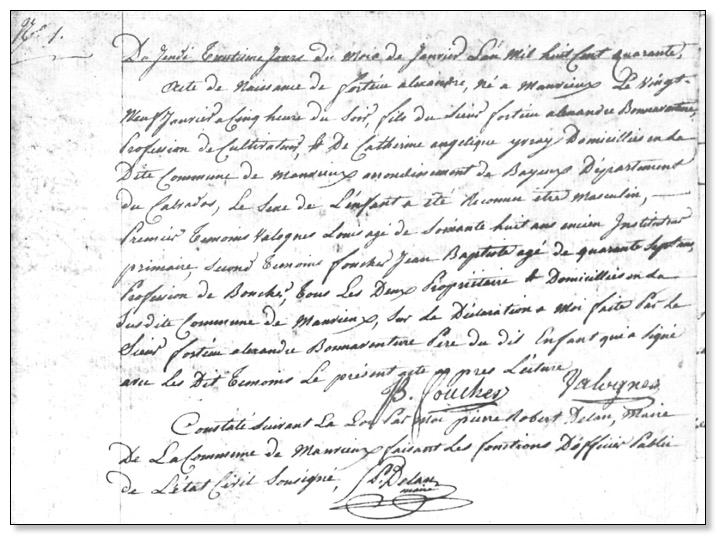 N° 1.
Du Jeudi Trentième Jours du Mois de Janvier L'an Mil huit Cent quarante,
Acte de Naissance de fortin alexandre, né a Manvieux Le Vingt-
Neuf Janvier a Cinq heure du Soir, fils du Sieur fortin alexandre Bonnaventure,
Profession de Cultivateur, & De Catherine angelique yvray Domicilliés en la
Dite Commune de Manvieux arrondissement de Bayeux Département
du Calvados, Le Sexe de L'enfant a été Reconnu être Masculin,
Premier Temoins Valognes Louis agé de Soixante huit ans ancien Instituteur
primaire, Second Temoins foucher Jean Baptiste agé de quarante Sept ans,
Profession de Boucher, Tous Les Deux Propriétaire & Domicilliés en la
Susdite Commune de Manvieux, Sur la Déclaration a Moi faite Par le
Sieur fortin alexandre Bonnaventure Pere du dit Enfant qui a Signé
avec Les Dit Temoins Le présent acte après Lecture
B. foucher Valognes
Constaté Suivant La Loi Par Moi pierre Robert Delau, Maire
De La Commune de Manvieux faisant Les fonctions D'officier Public
de L'état Civil Sousigné, P. Delau
maire